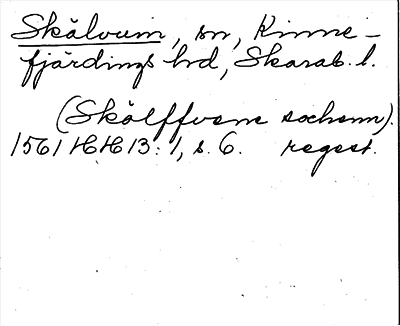 Skälvum, sn, Kinne-
fjärdings hd, Skarab. l.
(Skälffvem sochnn).
1561 HH 13:1, s. 6. regest.